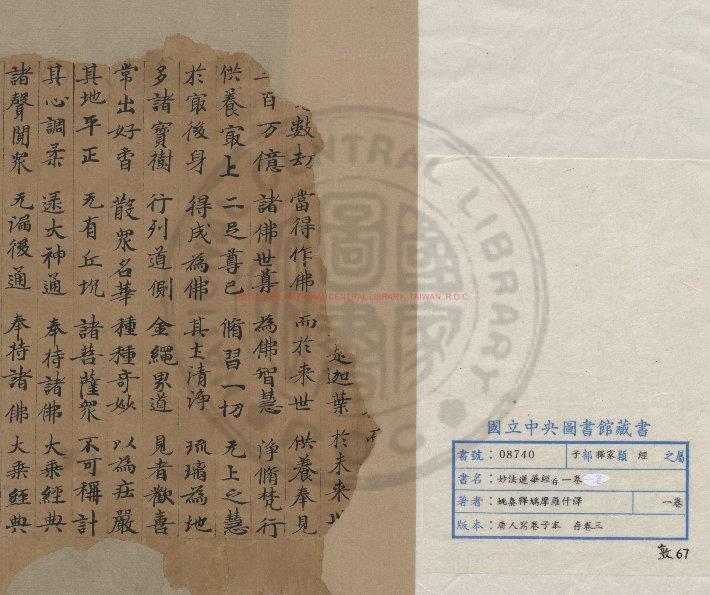 是迦葉 於未來
數劫 當得作佛 而於來世 供養奉見
三百万億 諸佛世尊 為佛智慧 淨脩梵行
供養㝡上 二足尊已 脩習一切 无上之慧
於㝡後身 得成為佛 其土清淨 琉璃為地
多諸寶樹 行列道側 金繩界道 見者歡喜
常出好香 散眾名華 種種奇妙 以為莊嚴
其地平正 无有丘坑 諸菩薩眾 不可稱計
其心調柔 逮大神通 奉持諸佛 大乘經典
諸聲聞眾 无漏後 奉持諸佛 大乘經典
CENTRAL LIBRARY
NATIONAL CENTRAL LIBRARY, TAIWAN, R.O.C
國立中央圖書館藏書
書號：08740 子部釋家類 經 之屬
書名：妙法蓮華經存一卷
著者：姚秦釋鳩摩羅什譯 一卷
版本：唐人寫卷子本 存卷三
敦67